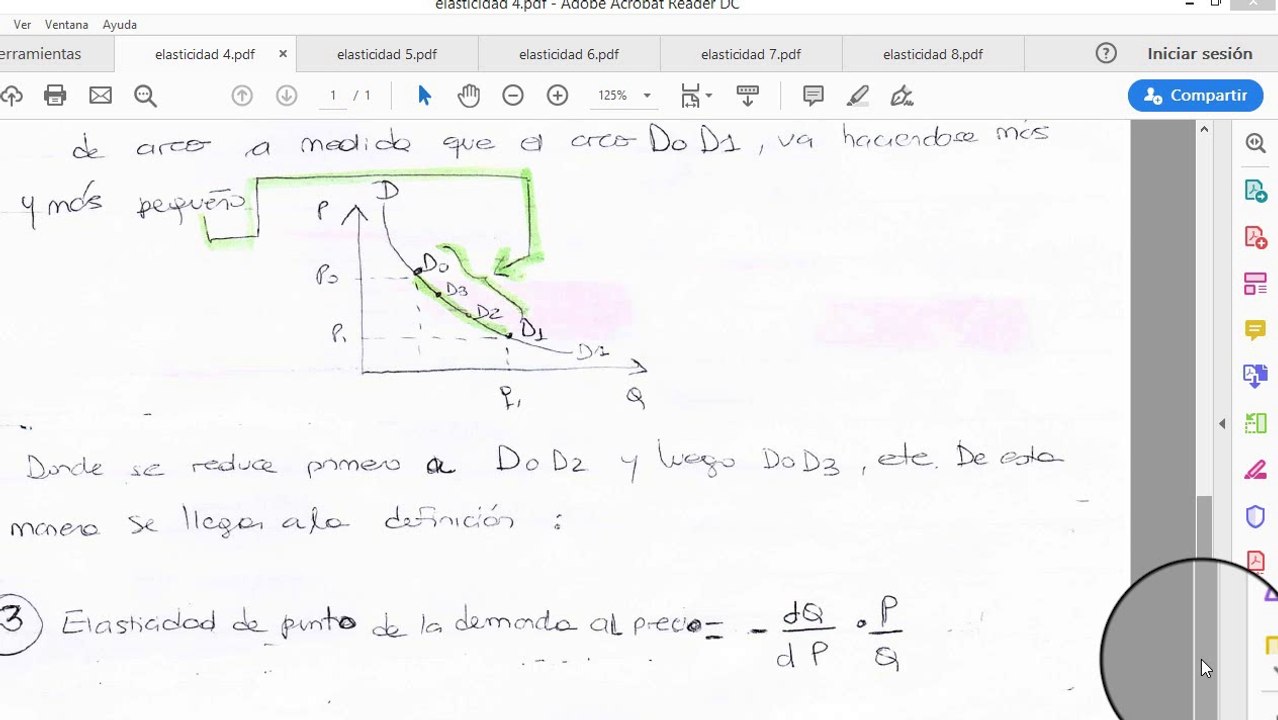 elasticidad 4.pdf - Adobe Acrobat Reader DC
Ver Ventana Ayuda
erramientas elasticidad 4.pdf × elasticidad 5.pdf elasticidad 6.pdf elasticidad 7.pdf elasticidad 8.pdf ? Iniciar sesión
1 / 1 125% Compartir
de arco a medida que el arco D0 D1, va haciendose más
y más pequeño
P D
P0 D0
D3
D2
P1 D1
D1
q1 Q
Donde se reduce primero a D0D2 y luego D0D3, etc. De esta
manera se llegar a la definición :
3 Elasticidad de punto de la demanda al precio = - dQ/dP . P/Q